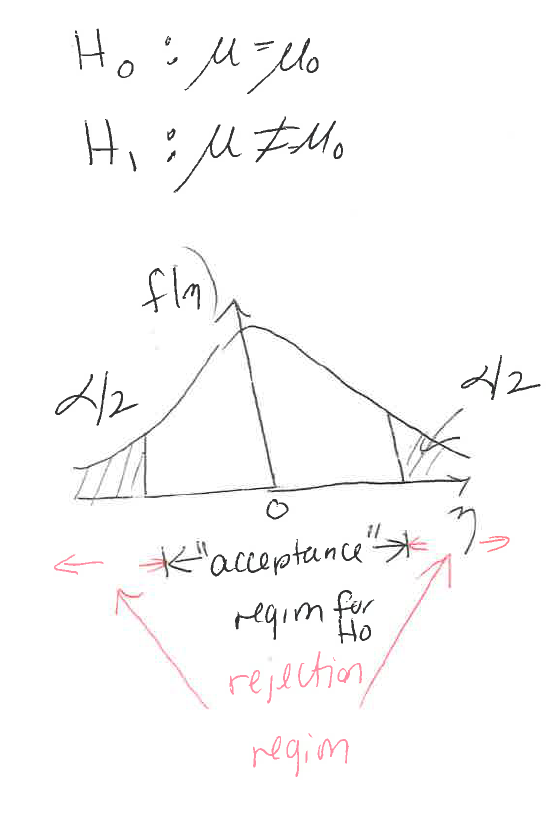 H₀ : μ = μ₀
H₁ : μ ≠ μ₀
f(η)
α/2
α/2
0
η
"acceptance"
region for
H₀
rejection
region